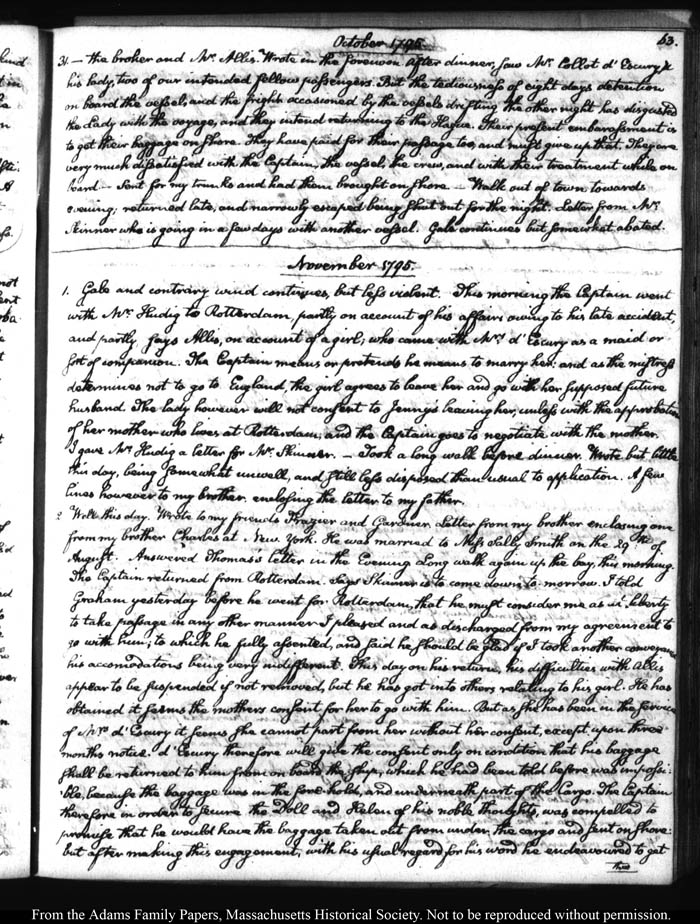 October 1795.
53.
31.— the broker and Mr. Allis. Wrote in the forenoon. After dinner, saw Mr. Collot d'Escury &
his lady, two of our intended fellow passengers. But the tediousness of eight days detention
on board the vessel, and the fright occasioned by the vessels drifting the other night has disgusted
the Lady with the voyage, and they intend returning to the Hague. Their present embarassment is
to get their baggage on shore. They have paid for their passage too, and must give up that. They are
very much dissatisfied with the Captain, the vessel, the crew, and with their treatment while on
board.— Sent for my trunks and had them brought on shore.— Walk out of town towards
evening; returned late, and narrowly escaped being shut out for the night. Letter from Mr.
Skinner who is going in a few days with another vessel. Gale continues but somewhat abated.
November 1795.
1. Gale and contrary wind continues, but less violent. This morning the Captain went
with Mr. Hudig to Rotterdam, partly on account of his affairs owing to his late accident,
and partly, says Allis, on account of a girl, who came with Mrs. d'Escury as a maid or
sort of companion. The Captain means or pretends he means to marry her: and as the mistress
determines not to go to England, the girl agrees to leave her and go with her supposed future
husband. The lady however will not consent to Jenny's leaving her, unless with the approbation
of her mother who lives at Rotterdam, and the Captain goes to negotiate with the mother.
I gave Mr. Hudig a letter for Mr. Skinner.— Took a long walk before dinner. Wrote but little
this day, being somewhat unwell, and still less disposed than usual to application. A few
lines however to my brother, enclosing the letter to my father.
2. Well this day. Wrote to my friends Frazier and Gardner. Letter from my brother enclosing one
from my brother Charles at New York. He was married to Miss Sally Smith on the 29th of
August. Answered Thomas's letter in the Evening. Long walk again up the bay, this morning.
The Captain returned from Rotterdam. Says Skinner is to come down to-morrow. I told
Graham yesterday before he went for Rotterdam, that he must consider me as at liberty
to take passage in any other manner I pleased and as discharged from my agreement to
go with him; to which he fully assented, and said he should be glad if I took another conveyance
his accomodations being very indifferent. This day on his return, his difficulties with Allis
appear to be suspended if not removed, but he has got into others relating to his girl. He has
obtained it seems the mothers consent for her to go with him. But as she has been in the service
of Mrs. d'Escury it seems she cannot part from her without her consent, except upon three
months notice. d'Escury therefore will give the consent only on condition that his baggage
shall be returned to him from on board the ship, which he had been told before was impossi-
ble, because the baggage was in the fore-hold, and underneath part of the Cargo. The Captain
therefore in order to secure the Doll and Helen of his noble thoughts, was compelled to
promise that he would have the baggage taken out from under the cargo and sent on shore
but after making this engagement, with his usual regard for his word he endeavoured to get
From the Adams Family Papers, Massachusetts Historical Society. Not to be reproduced without permission.